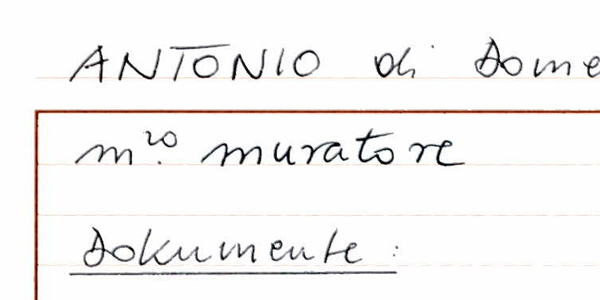 ANTONIO di Dome
m.ro muratore
Dokumente: